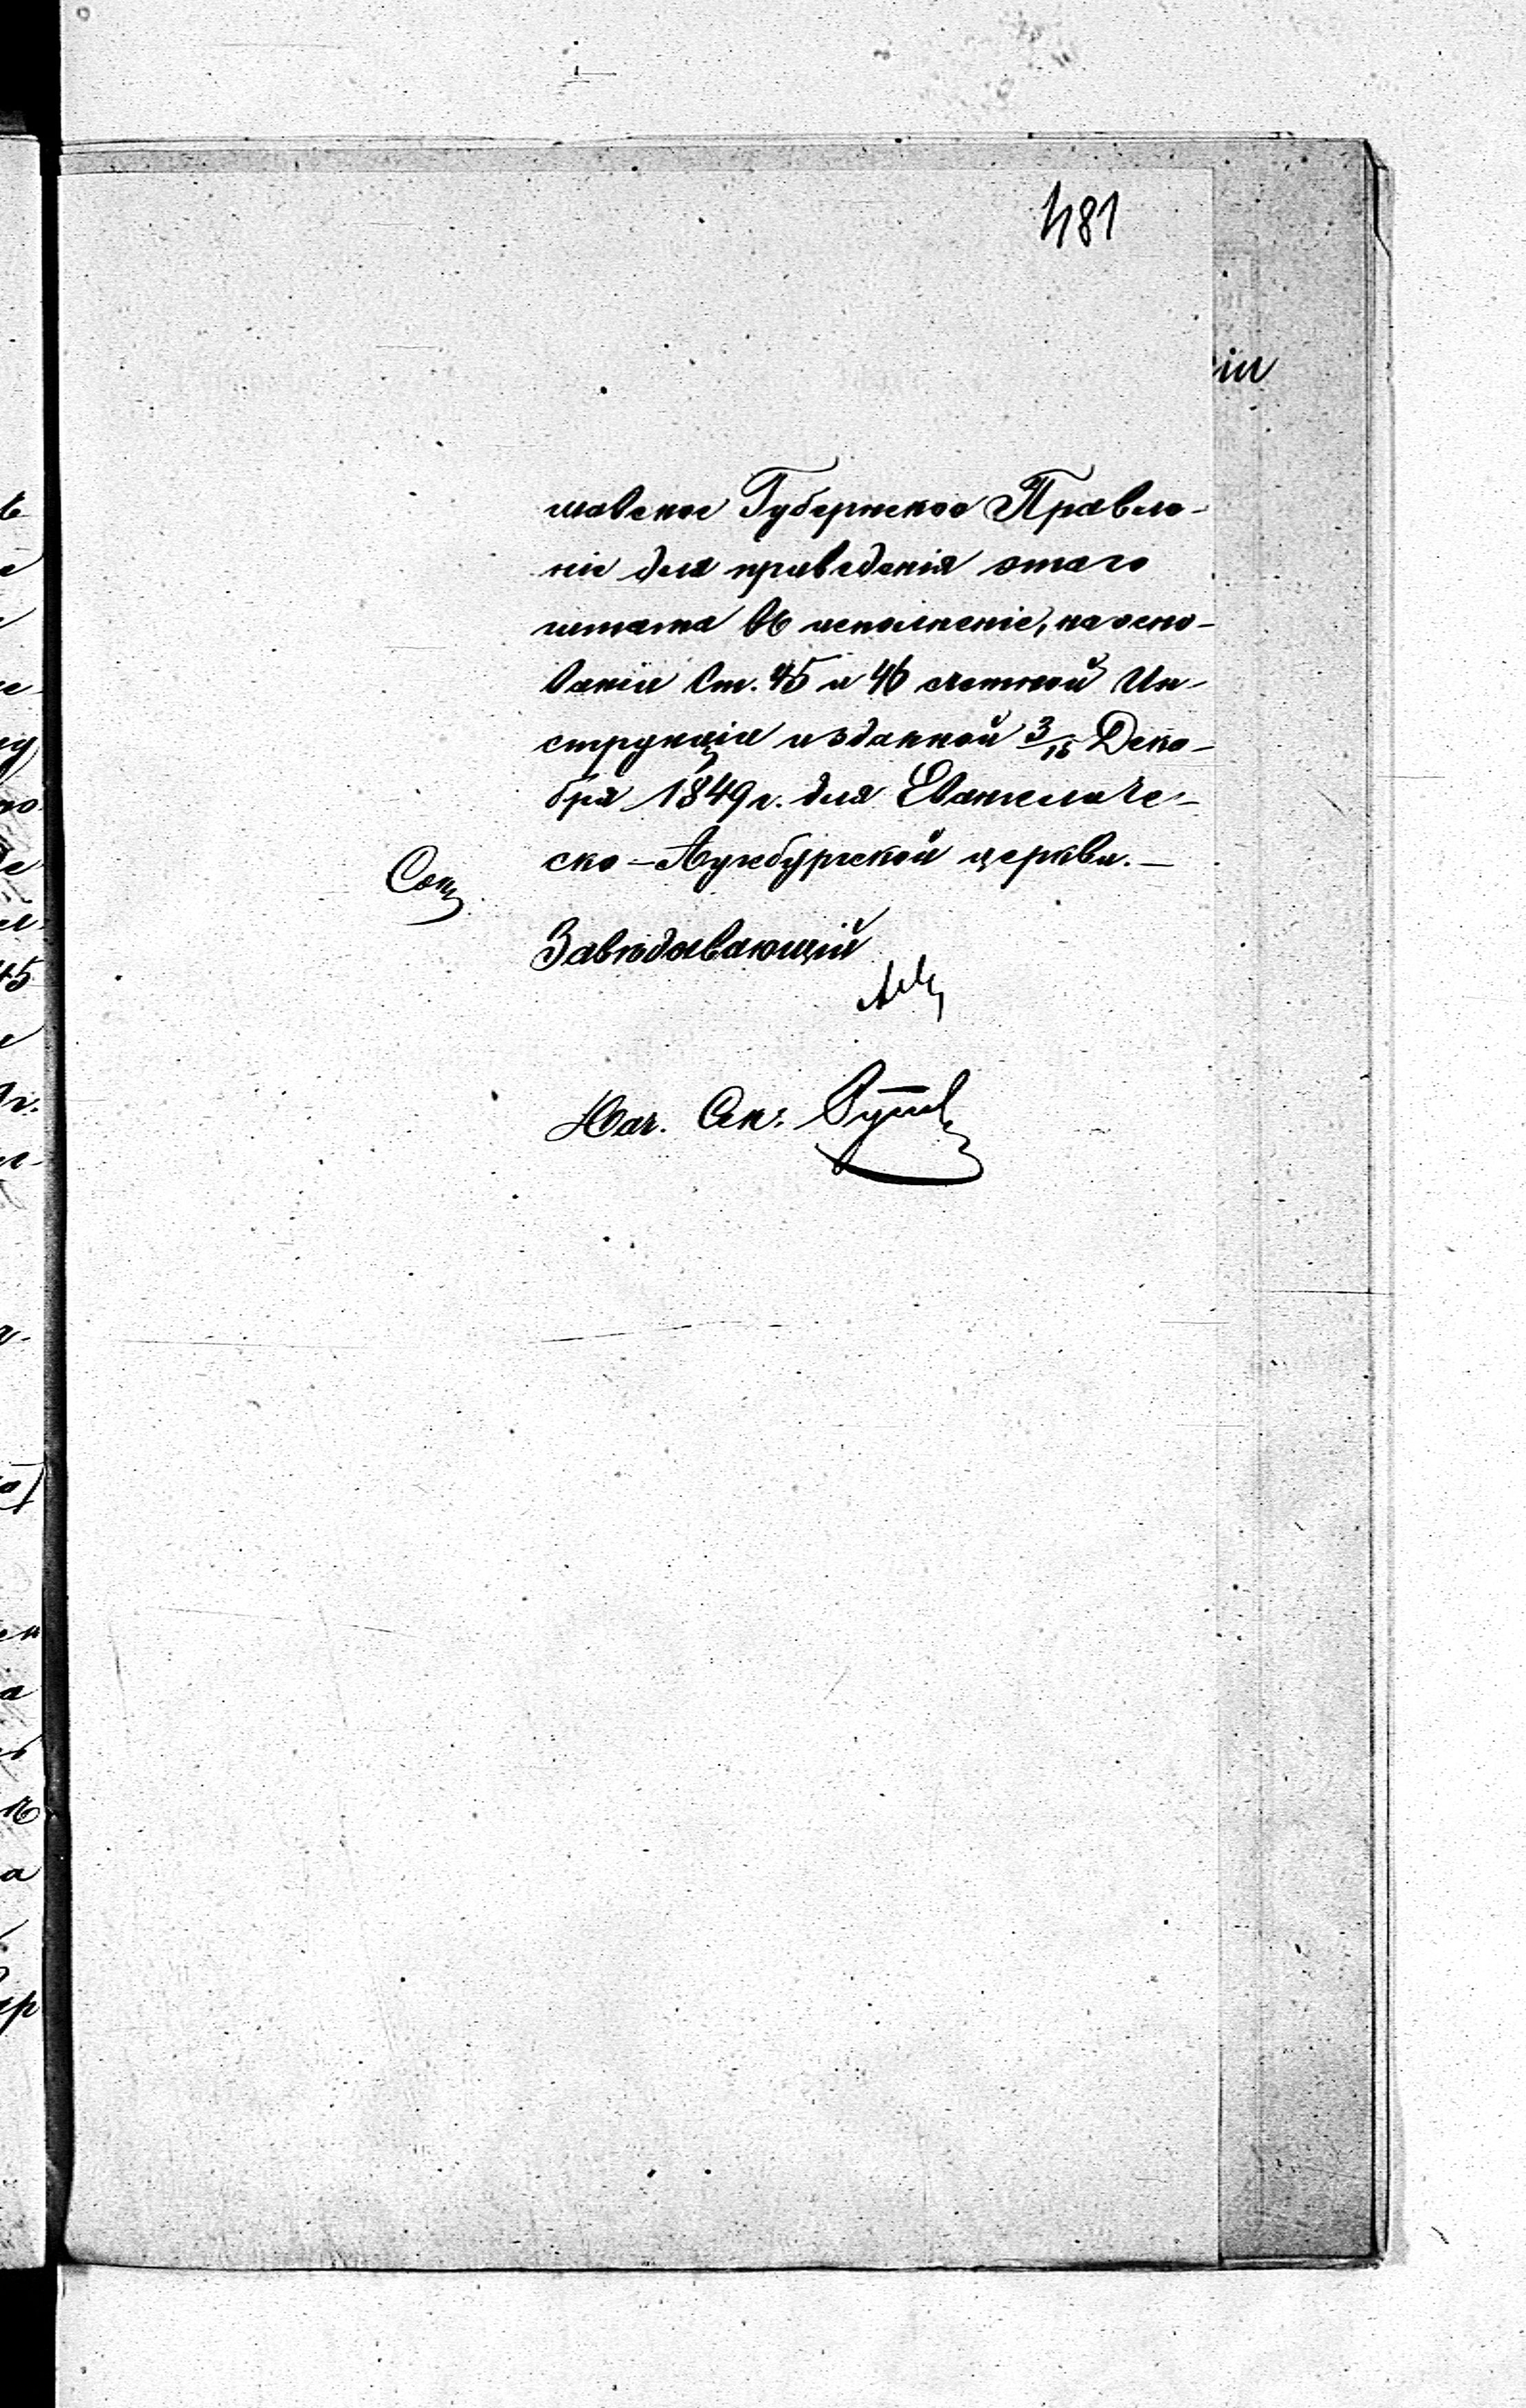 481
шавское Губернское Правле-
ніе для приведенія этаго
штата въ исполненіе, на осно-
ваніи ст. 45 и 46 счетной Ин-
струкціи изданной 3/15 Дека-
бря 1849 г. для Евангеличе-
ско-Аугсбургской церкви.—
Завѣдывающій
Нач. Сек.